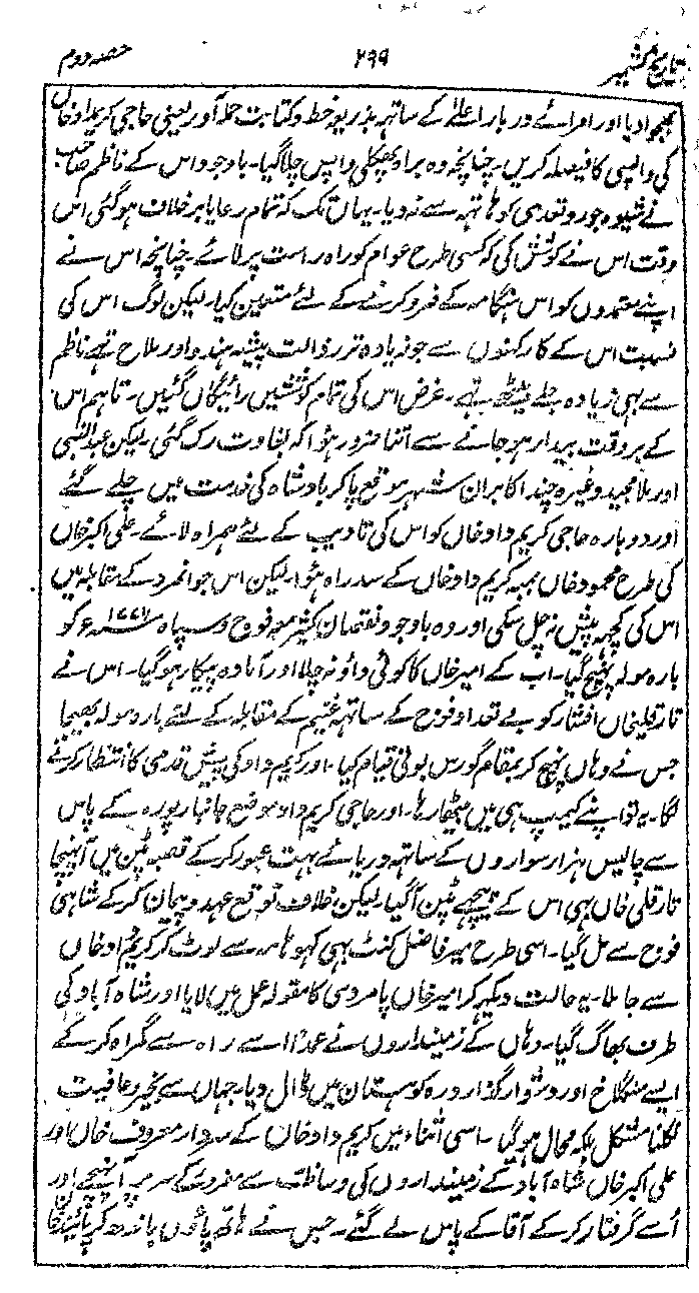 تاریخ کشمیر ۲۹۹ حصہ دوم
بھجوا دیا اور امرائے دربار اعلےٰ کے ساتہہ بذریعہ خط و کتابت حملہ آور یعنی حاجی کریمداد خاں
کی واپسی کا فیصلہ کریں۔ چنانچہ وہ براہ پکھلی واپس چلا گیا۔ باوجود اس کے ناظم صاحب
نے شیوہ جور و تعدی کو ہاتہہ سے نہ دیا۔ یہاں تک کہ تمام رعایا برخلاف ہو گئی اس
وقت اس نے کوشش کی کہ کسی طرح عوام کو راہ راست پر لائے۔ چنانچہ اس نے
اپنے معتمدوں کو اس ہنگامہ کے فرو کرنے کے لئے متعین کیا۔ لیکن لوگ اس کی
نسبت اس کے کارکنوں سے جو زیادہ تر رذالت پیشہ ہندو اور ملاح تہے ناظم
سے بہی زیادہ جلے بیٹھے تہے۔ غرض اس کی تمام کوششیں رائیگاں گئیں۔ تاہم اس
کے بر وقت بیدار ہو جانے سے اتنا ضرور ہوا کہ بغاوت رک گئی۔ لیکن عبدالنبی
اور ملا مجید وغیرہ چند اکابران شہر موقع پا کر بادشاہ کی خدمت میں چلے گئے
اور دوبارہ حاجی کریم داد خاں کو اس کی تادیب کے لئے ہمراہ لائے۔ علی اکبر خاں
کی طرح محمود خاں بمبہ کریم داد خاں کے سد راہ ہوا۔ لیکن اس جوانمرد کے مقابلہ میں
اس کی کچہہ پیش نہ چل سکی اور وہ باوجود نقصان کثیر معہ فوج و سپاہ ۱۷۷۶ء کو
بارہ مولہ پہنچ گیا۔ اب کے امیر خاں کا کوئی داؤ نہ چلا اور آمادہ پیکار ہو گیا۔ اس نے
تار قلیخاں افشار کو بے تعداد فوج کے ساتہہ غنیم کے مقابلہ کے لئے بارہ مولہ بھیجا
جس نے وہاں پہنچ کر بمقام گورس بوئی قیام کیا۔ اور کریم داد کی پیش قدمی کا انتظار کرنے
لگا۔ یہ تو اپنے کیمپ ہی میں بیٹھا رہا۔ اور حاجی کریم داد موضع جانباز پورہ کے پاس
سے چالیس ہزار سواروں کے ساتہہ دریائے بہت عبور کر کے قصبہ پٹن میں آ پہنچا
تار قلی خاں بہی اس کے پیچہے پٹن آ گیا۔ لیکن خلاف توقع عہد و پیمان کر کے شاہی
فوج سے مل گیا۔ اسی طرح میر فاضل کنٹ بہی کہو ہامہ سے لوٹ کر کریم داد خاں
سے جا ملا۔ یہ حالت دیکہر کر امیر خاں پامردی کا مقولہ عمل میں لایا اور شاہ آباد کی
طرف بھاگ گیا۔ وہاں کے زمینداروں نے عمداً اسے راہ سے گمراہ کر کے
ایسے سنگلاخ اور دشوار گذار درہ کوہستان میں ڈال دیا۔ جہاں سے بخیر و عافیت
نکلنا مشکل بلکہ محال ہو گیا۔ اسی اثناء میں کریم داد خان کے سردار معروف خاں اور
علی اکبر خاں شاہ آباد کے زمینداروں کی وساطت سے مفرور کے سر پر آ پہنچے اور
اُسے گرفتار کر کے آقا کے پاس لے گئے۔ جس نے ہاتھ پاؤں باندھ کر